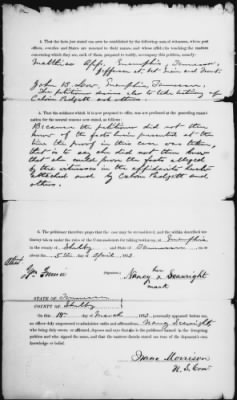 4. That the facts just stated can now be established by the following named witnesses, whose post
offices, counties and States are annexed to their names, and whose affidavits touching the matters
concerning which they are, each of them, prepared to testify, accompany this petition, namely:
Matthias App. Memphis, Tennessee.
John B. Low, Memphis, Tennessee
The petitioner desires also to take testimony of
Calvin Padgett and others.
5. That the evidence which it is now proposed to offer, was not presented at the
under the several reasons now stated, as follows:
Because the petitioner did not then
know of the facts herein presented at the
time the proof in this case was taken,
that is to say she did not then know
that she could prove the facts alleged
by the witnesses in the affidavits hereto
attached and by Calvin Padgett and
others.
6. The petitioner therefore prays that the case may be remanded, and the within described
testimony taken under the rules of the Commissioners for taking testimony, at Memphis
in the county of Shelby and State of Tennessee, on or
about the 5th day of April 187
Attest
Signature, Nancy x Searight
her
mark
STATE OF Tennessee
COUNTY OF Shelby
On this 18th day of March 187 personally appeared before me,
an officer duly empowered to administer oaths and affirmations, Nancy Searight
who being duly sworn, or affirmed, deposes and says that she is the petitioner named in the foregoing
petition and who signed the same, and that the matters therein stated are true of the deponent's own
knowledge or belief.
Morrison